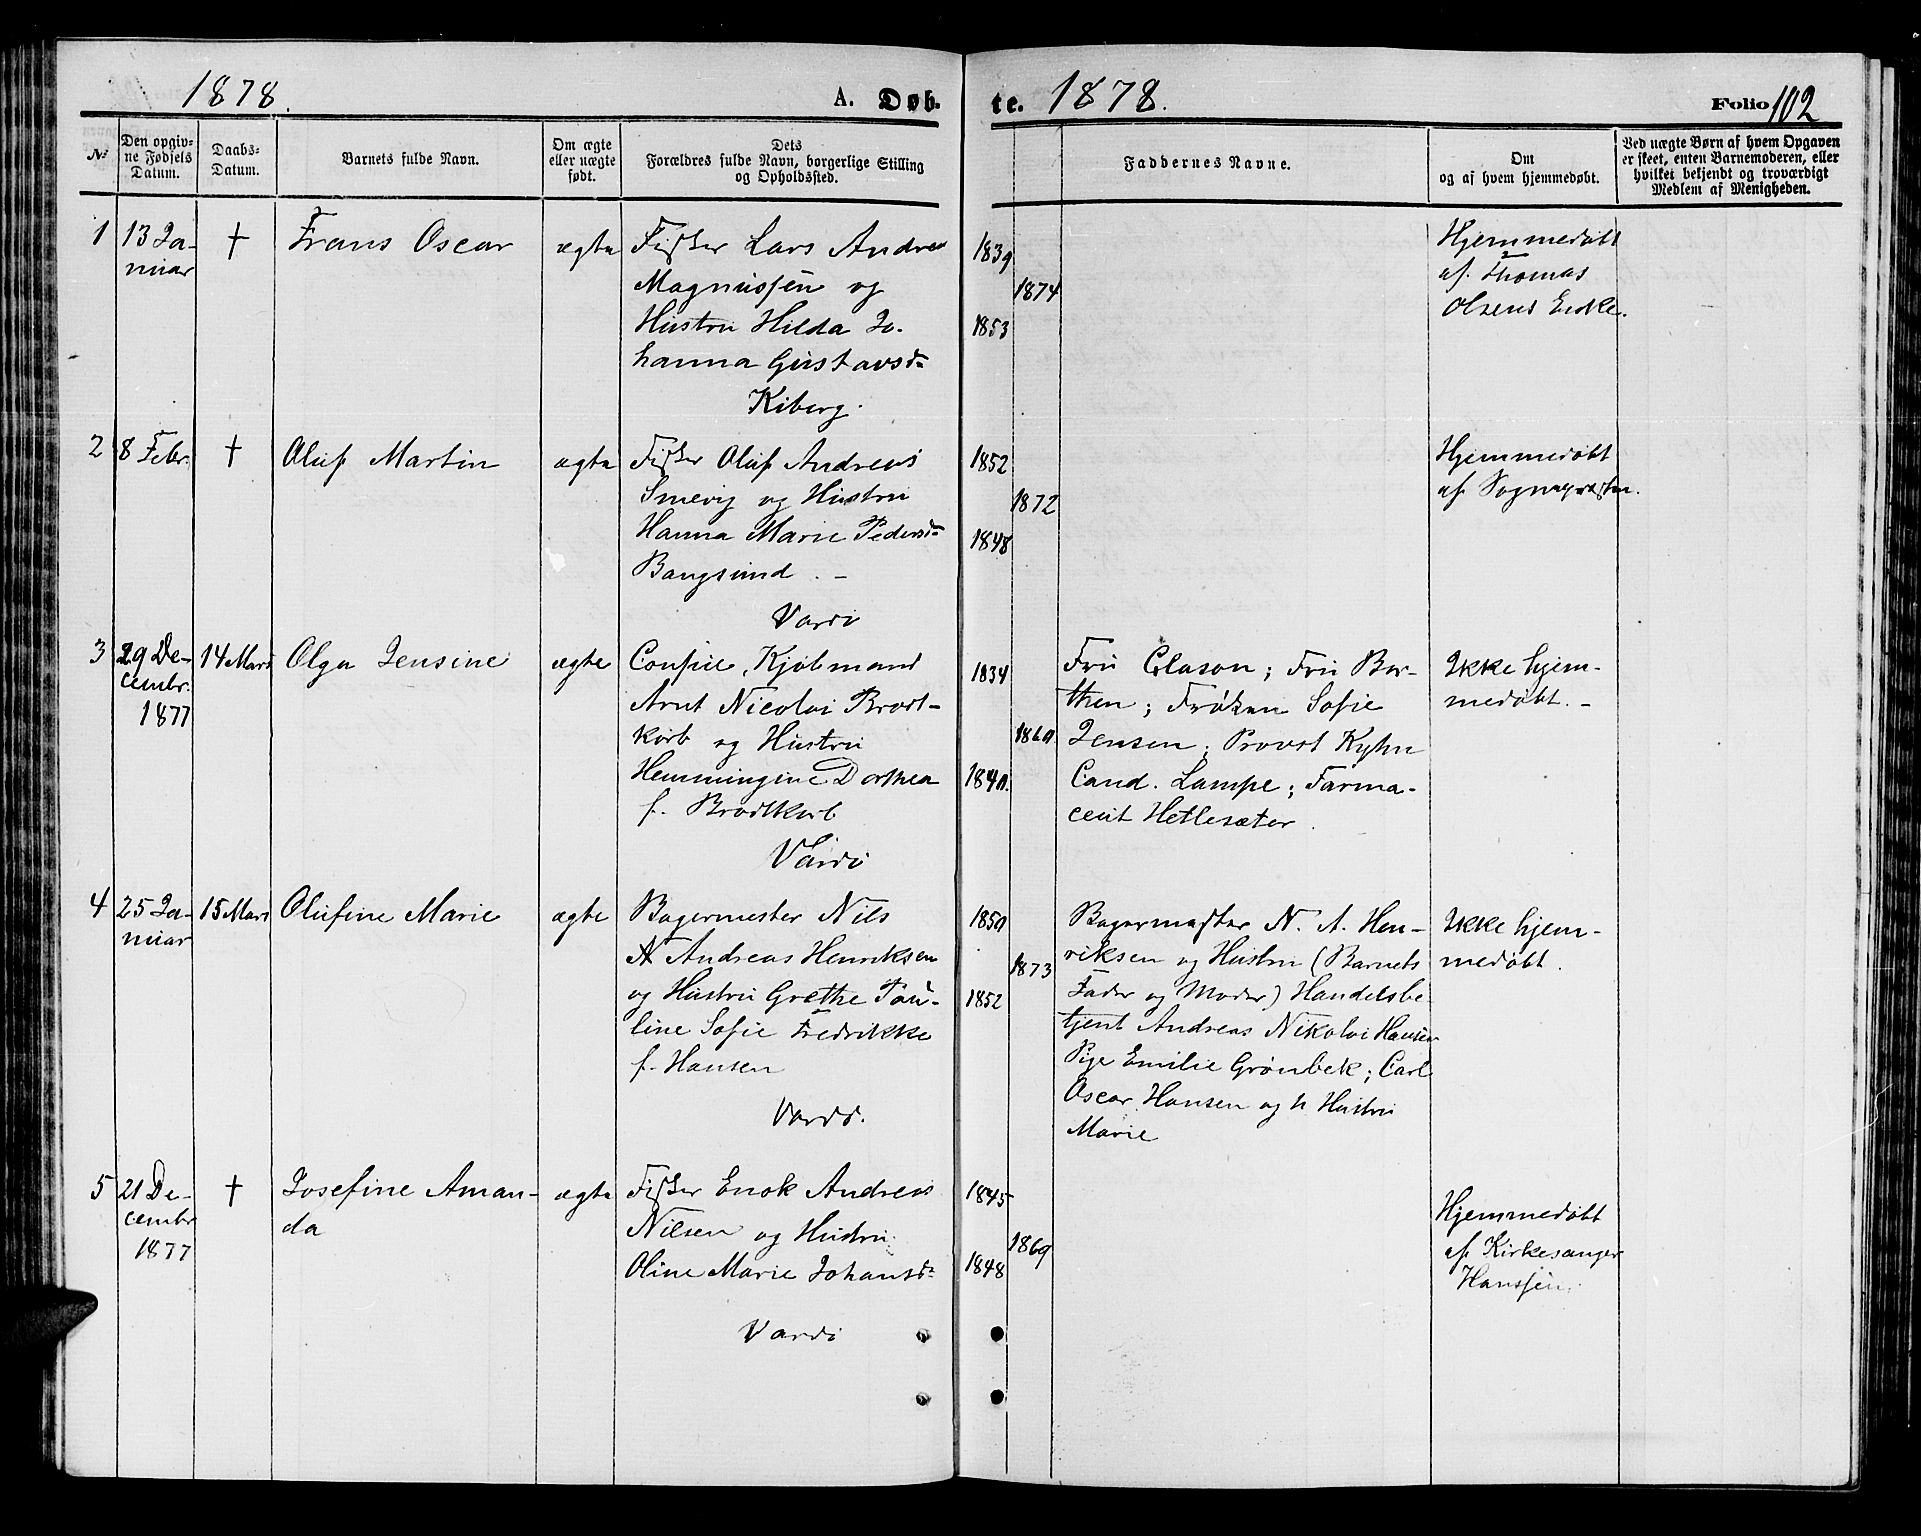 1878. A. Døb- te. 1878. Folio 102
№ Den opgivne Fødsels Datum. Daabs-Datum. Barnets fulde Navn. Om ægte eller uægte født. Dets Forældres fulde Navn, borgerlige Stilling og Opholdssted. Faddernes Navne. Om og af hvem hjemmedøbt. Ved uægte Børn af hvem Opgaven er skeet, enten Barnemoderen, eller hvilket bekjendt og troværdigt Medlem af Menigheden.
1 13 Ja- † Frans Oscar ægte Fisker Lars Andreas 1839 Hjemmedøbt
nuar Magnussen og 1874 af Thomas
Hustru Hilda Jo- 1853 Olsens Enke.
hanna Gustavsd.
Kiberg.
2 8 Febr. † Oluf Martin ægte Fisker Oluf Andreas 1852 Hjemmedøbt
Smevig og Hustru 1872 af Sognepresten.
Hanna Marie Pedersd. 1848
Bangsund. –
Vardö
3 29 De- 14 Mars Olga Jensine ægte Consul, Kjöbmand 1834 Fru Clason; Fru Bar- Ikke hjem-
cembr. Arnt Nicolai Brodt- then; Frøken Sofie medøbt. –
1877 korb og Hustru 1860 Jensen; Provst Kyhn
Hemmingine Dorthea 1840. Cand. Lampe; Farma-
f. Brodtkorb ceut Hetlesæter.
Vardö
4 25 Ja- 15 Mars Olufine Marie ægte Bagermester Nils 1850 Bagermester N. A. Hen- Ikke hjem-
nuar A Andreas Henriksen 1873 riksen og Hustru (Barnets medøbt.
og Hustru Grethe Pau- 1852 Fader og Moder) Handelsbe-
line Sofie Fredrikke tjent Andreas Nikolai Hansen
f. Hansen Pige Emilie Grønbek; Carl
Oscar Hansen og h Hustru
Vardö. Marie
5 21 De- † Josefine Aman- ægte Fisker Enok Andreas 1845 Hjemmedøbt
cembr da Nilsen og Hustru 1869 af Kirkesanger
1877 Oline Marie Johansd. 1848 Hanssen.
Vardö